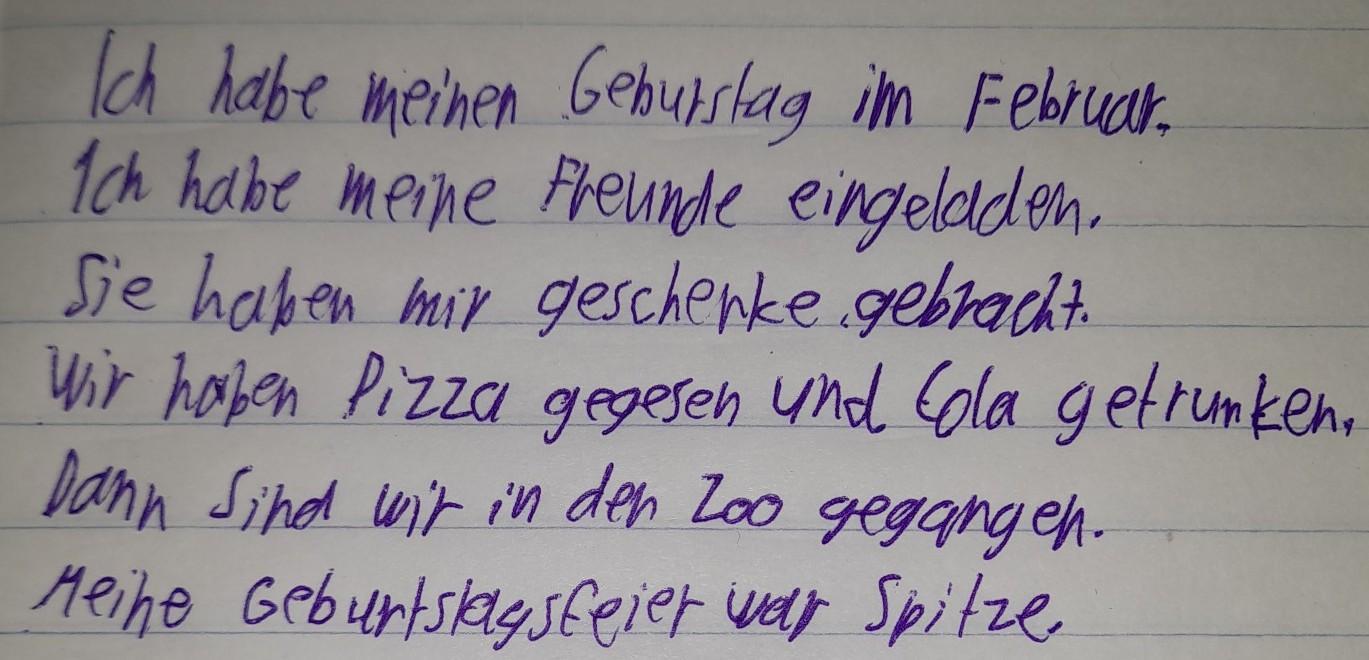 Ich habe meinen Geburstag im Februar.
Ich habe meine Freunde eingeladen.
Sie haben mir geschenke gebracht.
Wir haben Pizza gegesen und Cola getrunken.
Dann Sind wir in den Zoo gegangen.
Meine Geburtstagsfeier war Spitze.